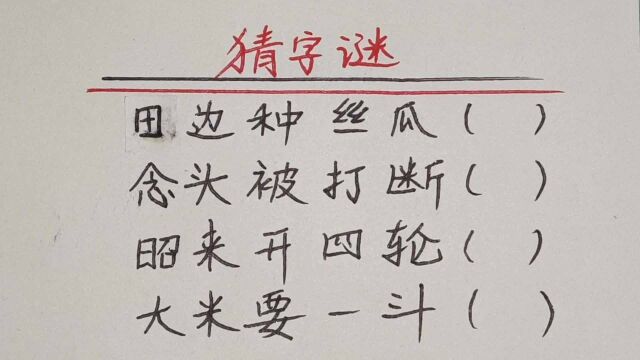 猜字谜
田边种丝瓜（ ）
念头被打断（ ）
昭来开四轮（ ）
大米要一斗（ ）